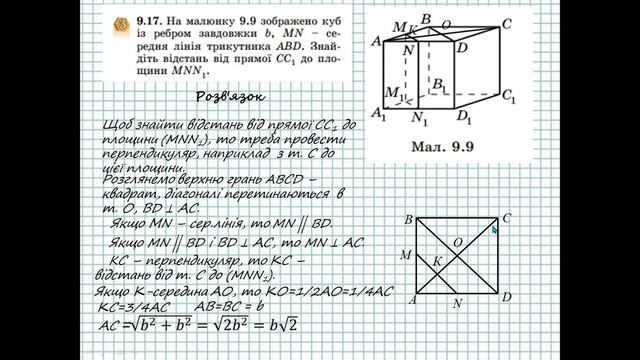 9.17. На малюнку 9.9 зображено куб
із ребром завдовжки b, MN – се-
редня лінія трикутника ABD. Знай-
діть відстань від прямої CC₁ до пло-
щини MNN₁.
Розв'язок
Щоб знайти відстань від прямої СС₁ до
площини (MNN₁), то треба провести
перпендикуляр, наприклад з т. С до
цієї площини.
Розглянемо верхню грань ABCD –
квадрат, діагоналі перетинаються в
т. О, BD ⊥ AC.
Якщо MN – сер.лінія, то MN || BD.
Якщо MN || BD і BD ⊥ AC, то MN ⊥ AC.
KC – перпендикуляр, то KC –
відстань від т. С до (MNN₁).
Якщо K-середина AO, то KO=1/2AO=1/4AC
KC=3/4AC AB=BC = b
AC =√b² + b² = √2b² = b√2
B
O
C
M
K
A
N
D
B₁
C₁
M₁
A₁
N₁
D₁
Мал. 9.9
B
C
M
O
K
A
N
D